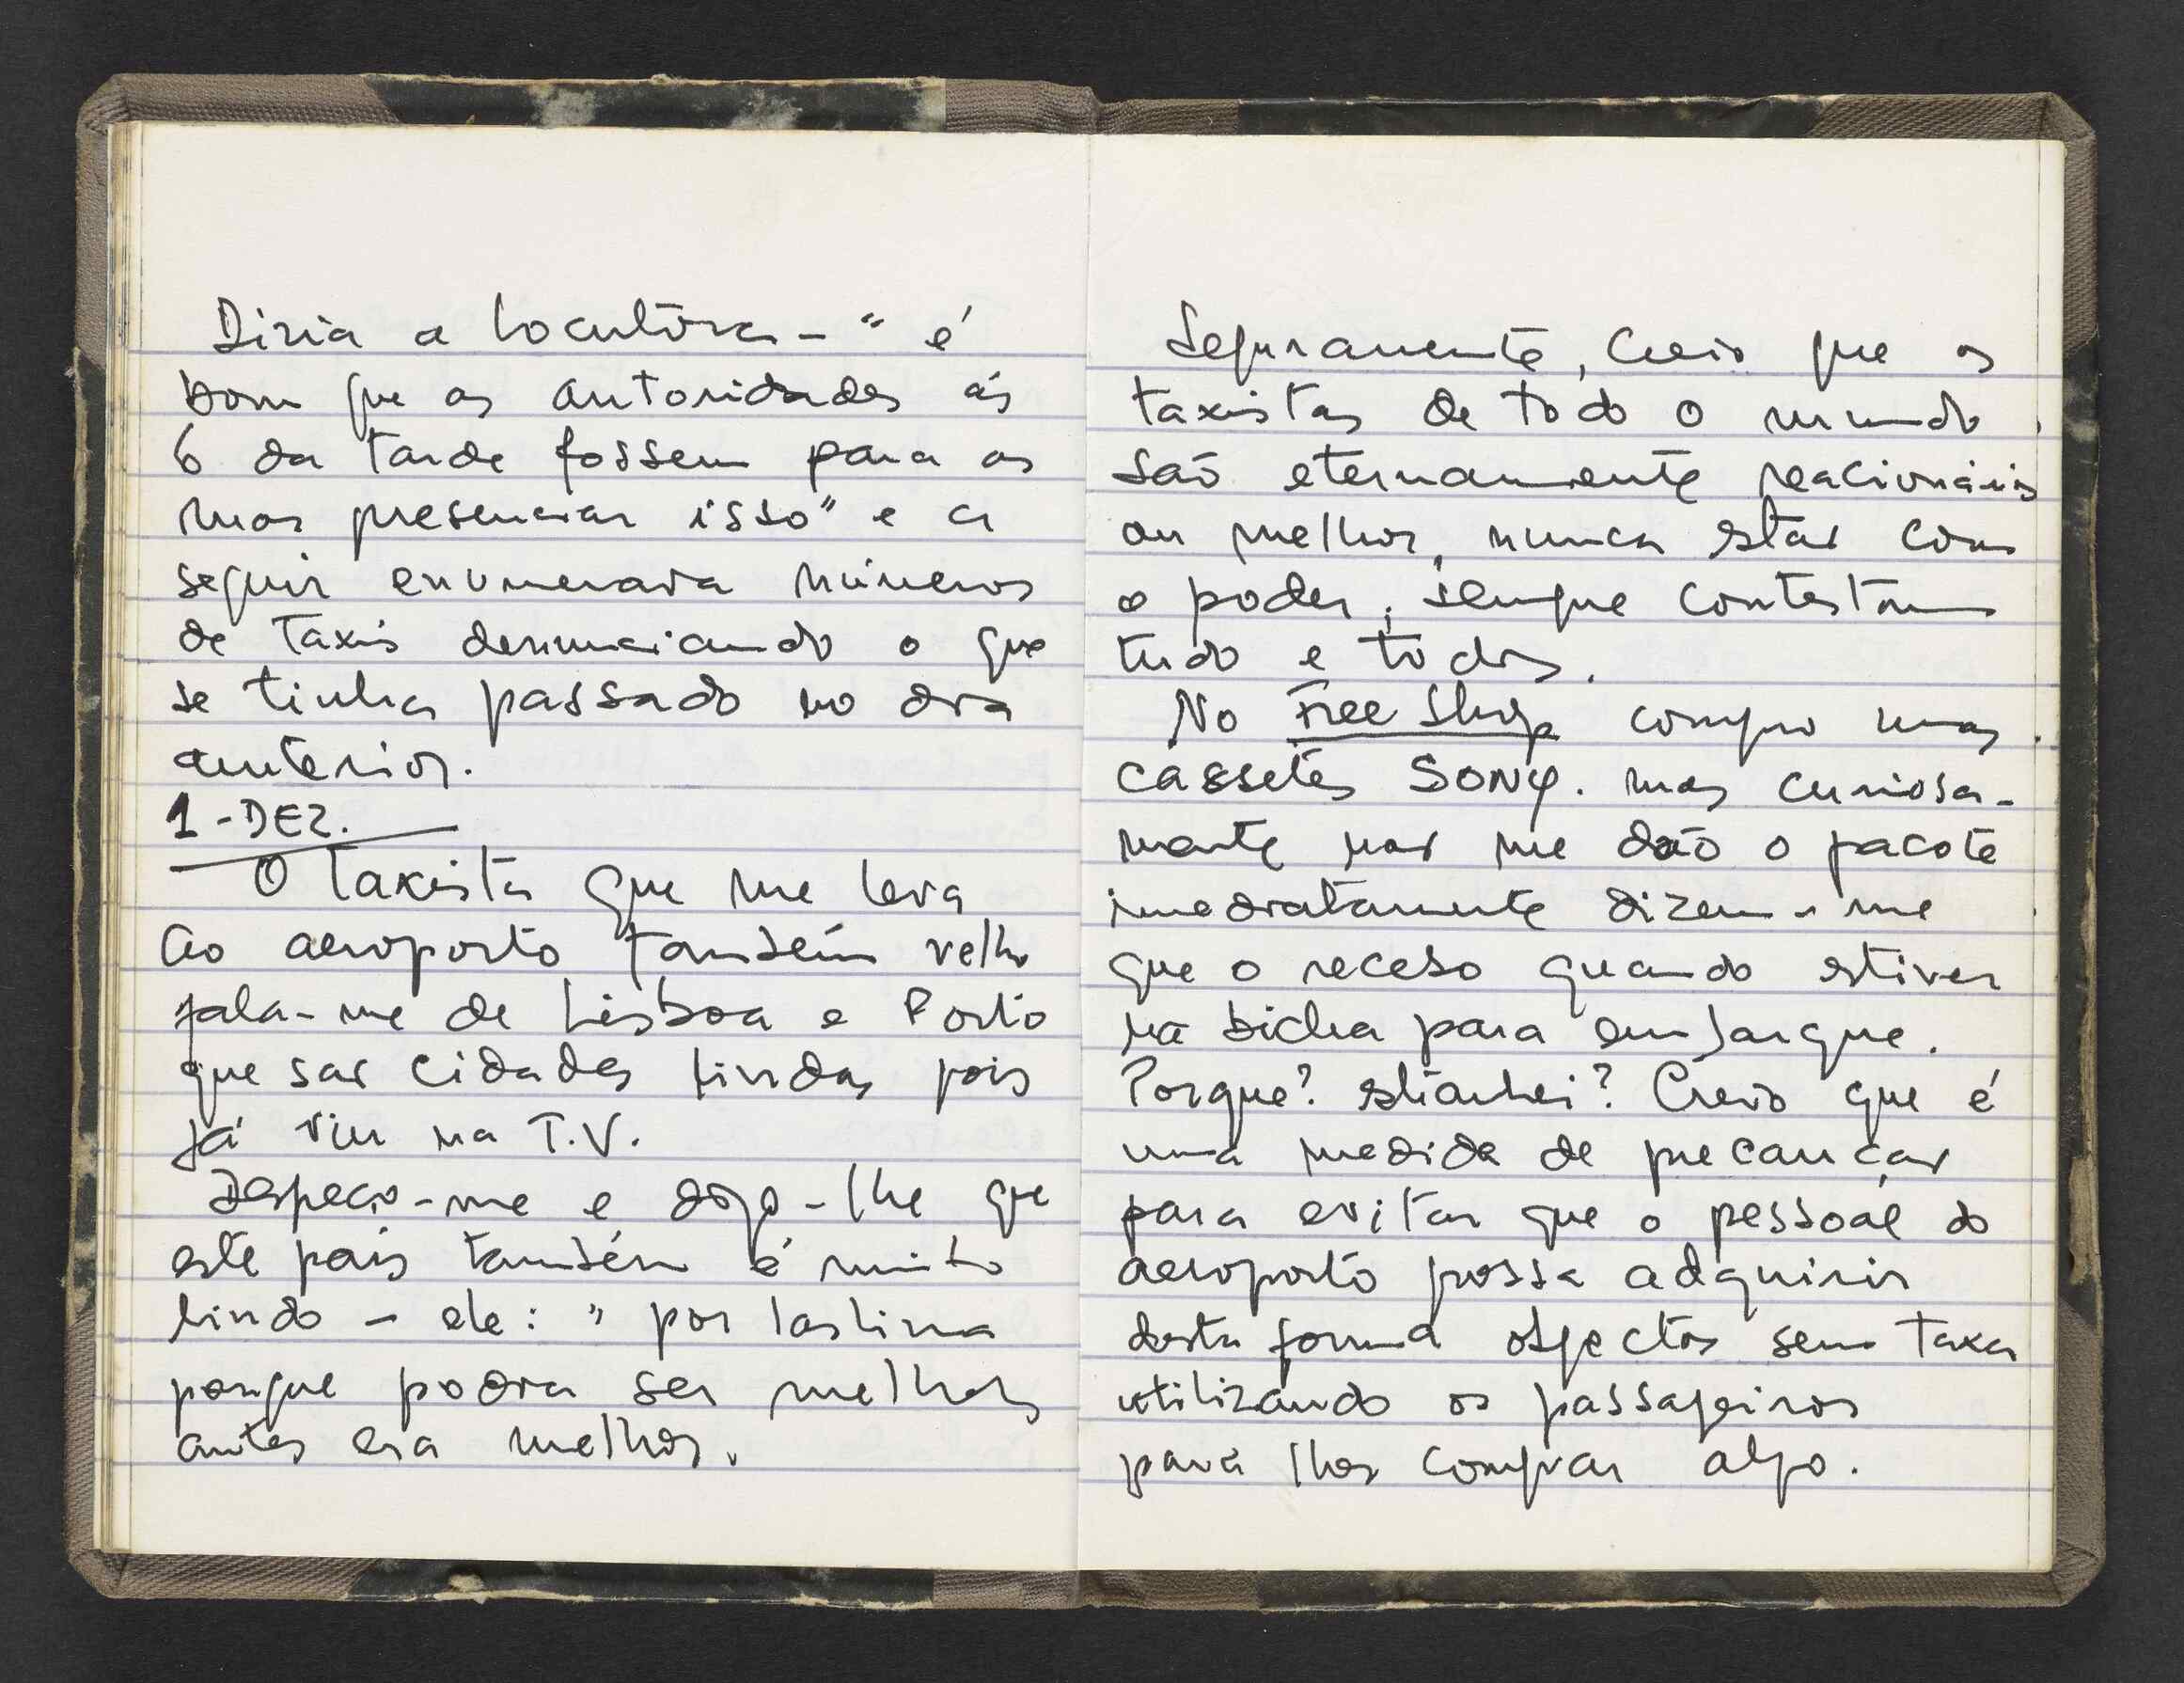 Diria a locutora - " é
bom que as autoridades ás
6 da tarde fossem para as
ruas presenciar isso" e a
seguir enumerava números
de taxis denunciando o que
se tinha passado no dia
anterior.
1 - DEZ.
O taxista que me leva
ao aeroporto também velho
fala-me de Lisboa e Porto
que são cidades lindas pois
já viu na T.V.
Despeço-me e digo-lhe que
este país também é muito
lindo - ele: " por lastima
porque podia ser melhor,
antes era melhor.
Seguramente, creio que os
taxistas de todo o mundo
são eternamente reacionários
ou melhor, nunca estão com
o poder; sempre contestam
tudo e todos.
No Free Shop compro umas
cassetes SONY. mas curiosa-
mente não me dão o pacote
imediatamente dizem-me
que o recebo quando estiver
na bicha para embarque.
Porque? estranhei? Creio que é
uma medida de precaução
para evitar que o pessoal do
aeroporto possa adquirir
desta forma objectos sem taxa
utilizando os passageiros
para lhes comprar algo.